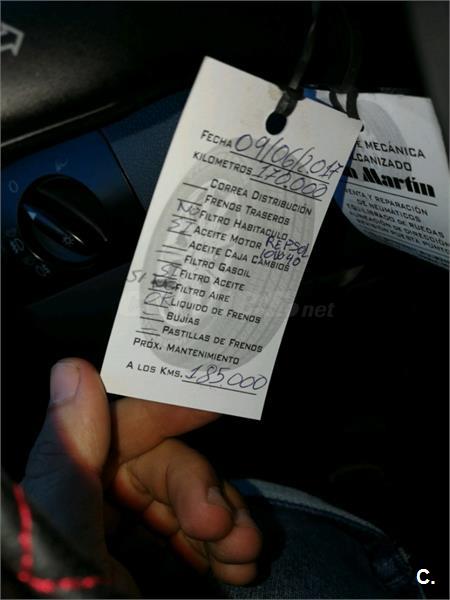 FECHA 09/06/2017
KILOMETROS 170.000
CORREA DISTRIBUCIÓN
FRENOS TRASEROS
NO FILTRO HABITACULO
SI ACEITE MOTOR REPSOL 10W40
ACEITE CAJA CAMBIOS
FILTRO GASOIL
SI FILTRO ACEITE
SI FILTRO AIRE
OK LIQUIDO DE FRENOS
BUJÍAS
PASTILLAS DE FRENOS
PRÓX. MANTENIMIENTO
A LOS KMS. 185.000
E MECÁNICA
LCANIZADO
Martín
VENTA Y REPARACIÓN
DE NEUMÁTICOS
EQUILIBRADO DE RUEDAS
ALINEACION DE DIRECCIÓN
.net
0
C.